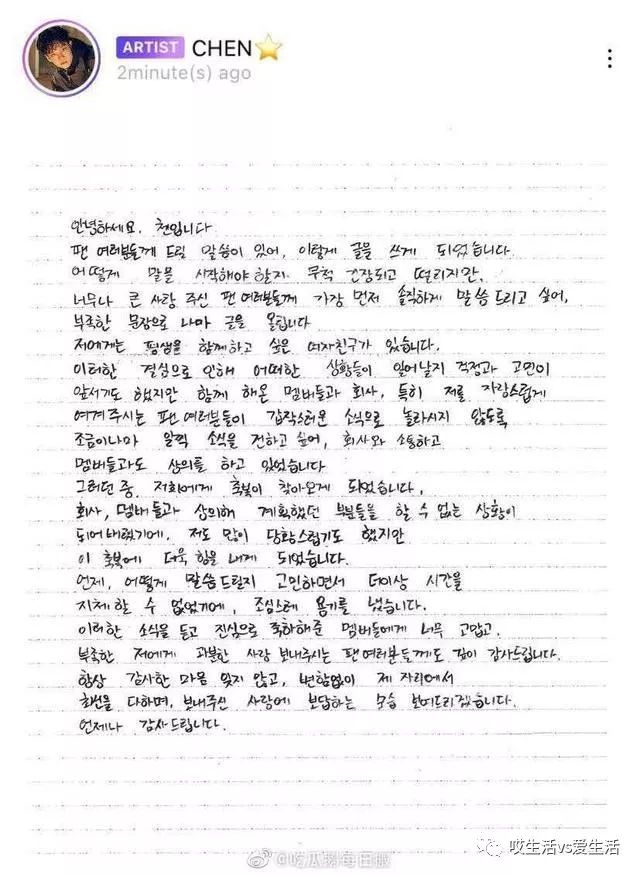 ARTIST CHEN⭐
2minute(s) ago
안녕하세요. 첸입니다
팬 여러분들께 드릴 말씀이 있어, 이렇게 글을 쓰게 되었습니다.
어떻게 말을 시작해야 할지 무척 긴장되고 떨리지만,
너무나 큰 사랑 주신 팬 여러분들께 가장 먼저 솔직하게 말씀 드리고 싶어,
부족한 문장으로 나마 글을 올립니다
저에게는 평생을 함께하고 싶은 여자친구가 있습니다.
이러한 결심으로 인해 어떠한 상황들이 일어날지 걱정과 고민이
앞서기도 했지만 함께 해온 멤버들과 회사, 특히 저를 자랑스럽게
여겨주시는 팬 여러분들이 갑작스러운 소식으로 놀라시지 않도록
조금이나마 일찍 소식을 전하고 싶어, 회사와 소통하고
멤버들과도 상의를 하고 있었습니다
그러던 중, 저희에게 축복이 찾아오게 되었습니다.
회사, 멤버들과 상의해 계획했던 부분들을 할 수 없는 상황이
되어버렸기에, 저도 많이 당황스럽기도 했지만
이 축복에 더욱 힘을 내게 되었습니다.
언제, 어떻게 말씀드릴지 고민하면서 더이상 시간을
지체할 수 없었기에, 조심스레 용기를 냈습니다.
이러한 소식을 듣고 진심으로 축하해준 멤버들에게 너무 고맙고,
부족한 저에게 과분한 사랑 보내주시는 팬 여러분들께도 깊이 감사드립니다.
항상 감사한 마음 잊지 않고, 변함없이 제 자리에서
최선을 다하며, 보내주신 사랑에 보답하는 모습 보여드리겠습니다.
언제나 감사드립니다.
哎生活vs爱生活